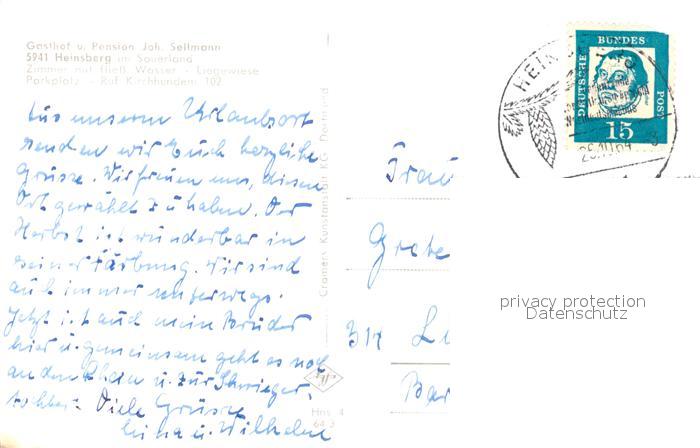 Gasthof u. Pension Joh. Sellmann
5941 Heinsberg im Sauerland
Zimmer mit fließ. Wasser - Liegewiese
Parkplatz - Ruf Kirchhundem 102
Aus unserem Urlaubsort
senden wir Euch herzliche
Grüsse. Wir freuen uns, diesen
Ort gewählt zu haben. Der
Herbst ist wunderbar in
seiner Färbung. Wir sind
auch immer unterwegs.
Jetzt ist auch mein Bruder
hier u. gemeinsam geht es noch
an den Rhein u. zur Schwieger-
tochter. Viele Grüsse
u. Wilhelm
Cramers Kunstanstalt KG. Dortmund
Hns 4
64
Frau
Grete
314 Lü
Bar
DEUTSCHE BUNDES POST
15
HEIN
26.10.64
privacy protection
Datenschutz